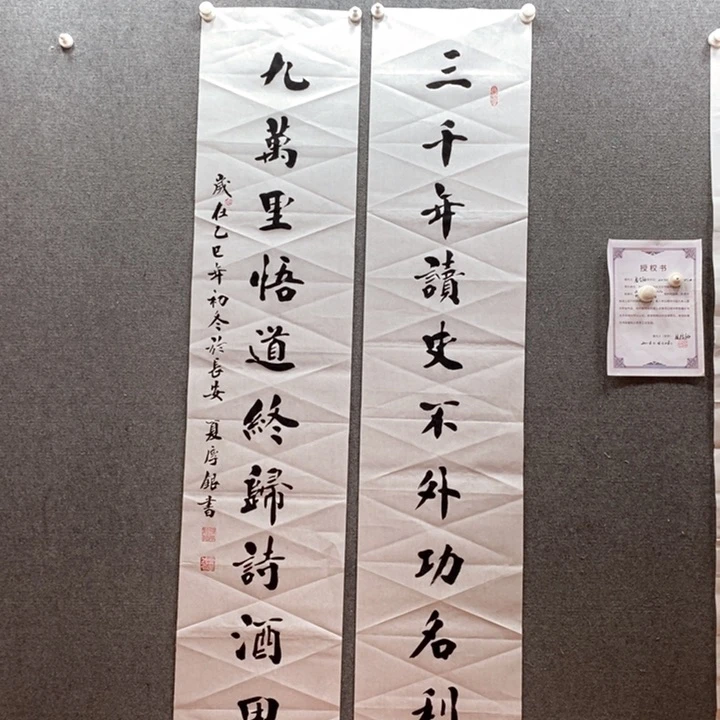 三千年讀史不外功名利
九萬里悟道終歸詩酒田
歲在乙巳年初冬於長安 夏厚銀書
授权书